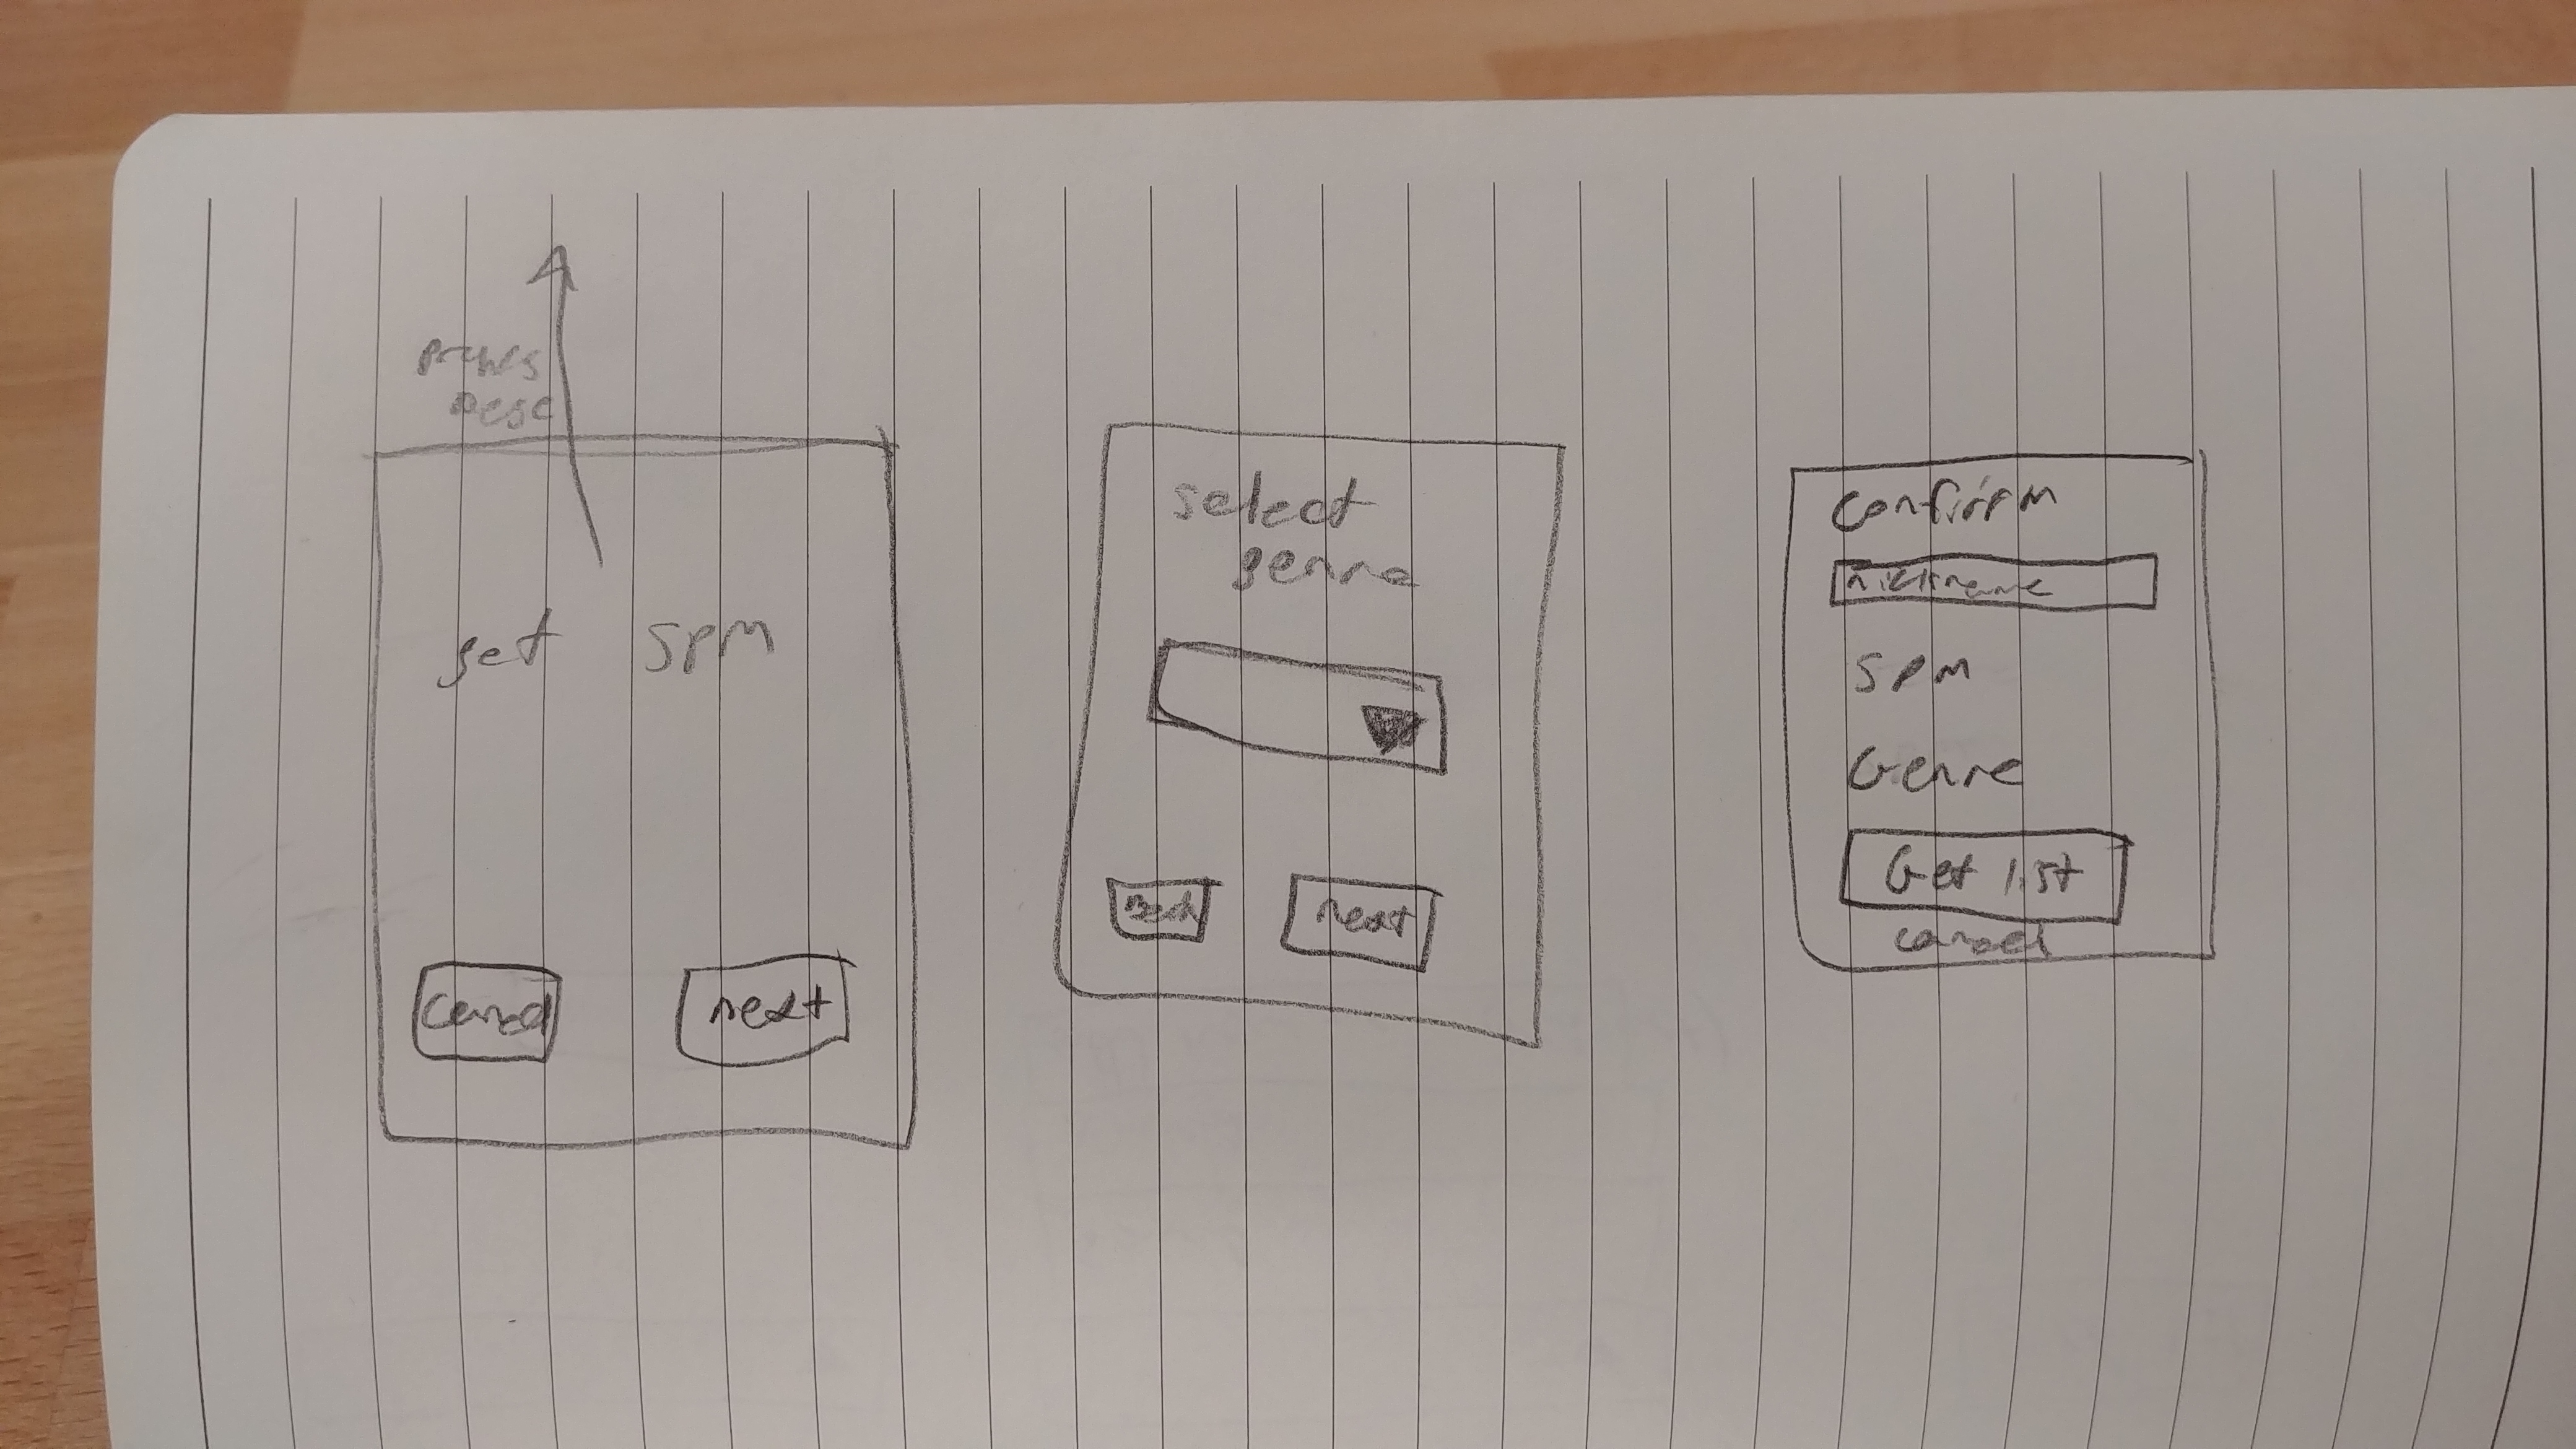 get SPM
cancel
next
select
genre
back
next
confirm
nickname
SPM
Genre
Get list
cancel